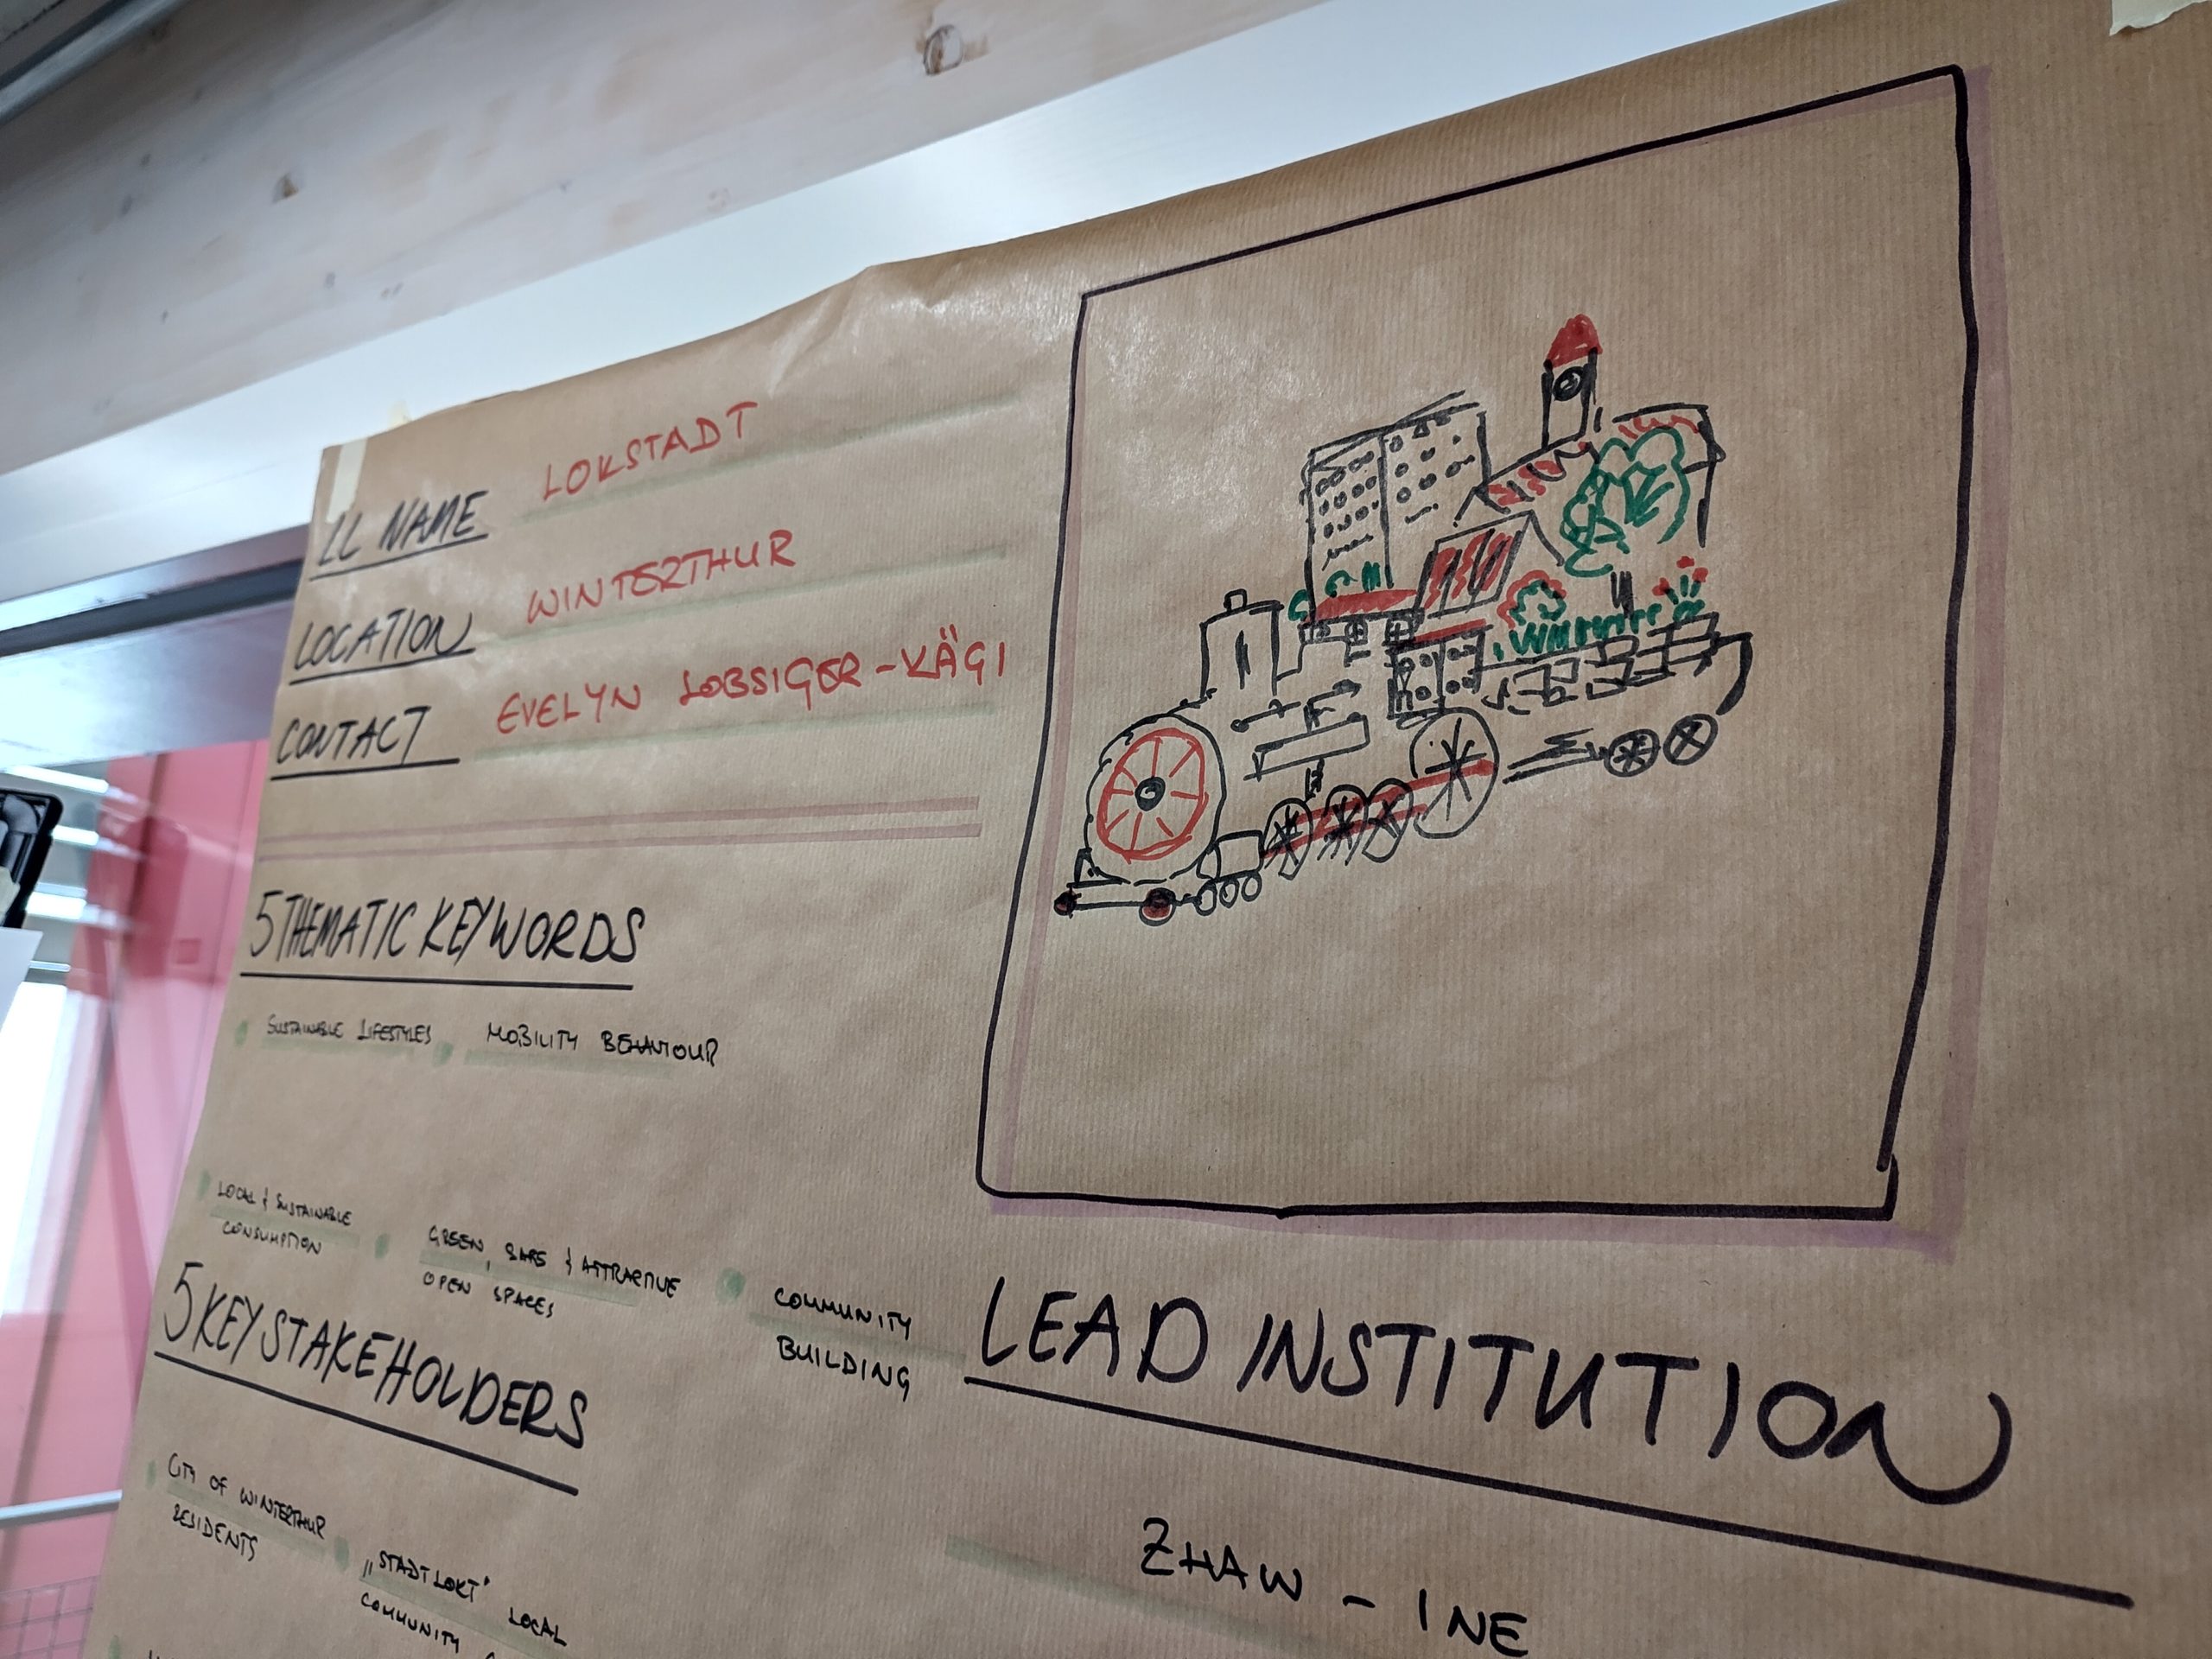 LL NAME LOKSTADT
LOCATION WINTERTHUR
CONTACT EVELYN LOBSIGER-KÄGI
5 THEMATIC KEYWORDS
SUSTAINABLE LIFESTYLES
MOBILITY BEHAVIOUR
LOCAL & SUSTAINABLE
CONSUMPTION
GREEN, SAFE & ATTRACTIVE
OPEN SPACES
COMMUNITY
BUILDING
5 KEY STAKEHOLDERS
CITY OF WINTERTHUR
RESIDENTS
„STADTLOKT" LOCAL
COMMUNITY
LEAD INSTITUTION
ZHAW - INE